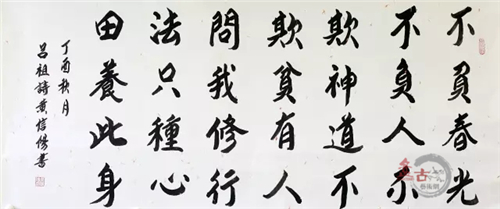 不負春光
不負人不
欺神道不
欺貧有人
問我修行
法只種心
田養此身
丁酉秋月
呂祖詩黃信陽書